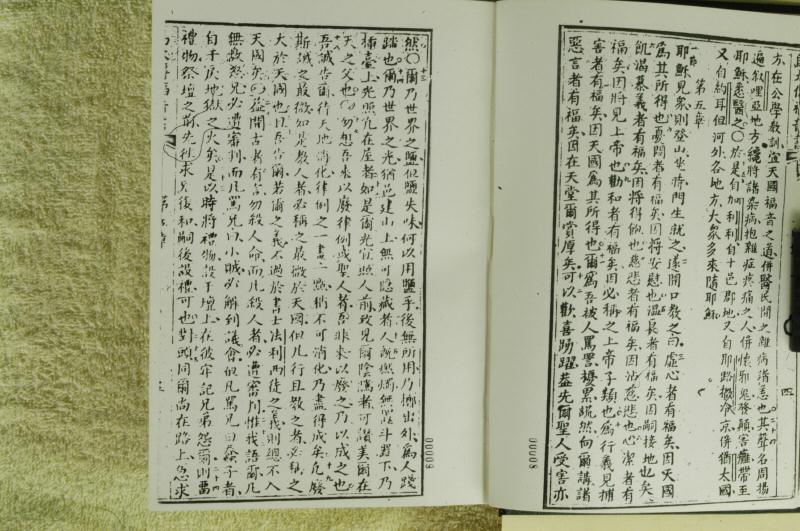 方在公學教訓宣天國福音之道併醫民間之雜病諸恙也其聲名周揚
遍叙哩亞地方將諸染病抱雜症疼痛之人併懷邪鬼發顛害癱帶至
耶穌悉醫之○於是自加利利自十邑郡地又自耶路撒冷京併猶太國
又自約耳但河外各地方大眾多來隨耶穌
第五章
耶穌見眾則登山坐時門生就之遂開口教之曰虛心者有福矣因天國
為其所得也憂悶者有福矣因將安慰也溫良者有福矣因嗣接地也
飢渴慕義者有福矣因將得飽也慈悲者有福矣因沾慈悲也心潔者有
福矣因將見上帝也勸和者有福矣因必稱之上帝子類也為行義見捕
害者有福矣因天國為其所得也爾為吾被人罵詈擾累疏然向爾講諸
惡言者有福矣因在天堂爾賞厚矣可以歡喜踴躍蓋先爾聖人受害亦
00008
然○爾乃世界之鹽但鹽失味何以用鹽乎後無所用乃擲出外為人踐
踏也爾乃世界之光猶邑建山上無可隱藏者人既燃燭無置斗下乃
插臺上光照凡在屋者如是爾光宜照人前致見爾陰騭者可讚美爾在
天之父也勿想吾來以廢律例或聖人者吾非來以廢之乃以成之也
吾誠告爾待天地消化律例之一畫一點稍不可消化乃盡得成矣凡廢
斯誡之最微如是教人者必稱之最微於天國但凡行且教之者必稱之
大於天國也且吾告爾若爾之義不過於書士法利西徒之義則總不入
天國矣爾聞古者有言勿殺人命而凡殺人者必遭審判惟我語爾凡
無故怒兄必遭審判而凡罵兄曰小賊必解到議會但凡罵兄曰蠢子者
自干戾地獄之火矣是以時將禮物設于壇上在彼牢記兄弟怨爾則留
禮物祭壇之前先往求兄後和嗣後設禮可也對頭同爾尚在路上急求
00008